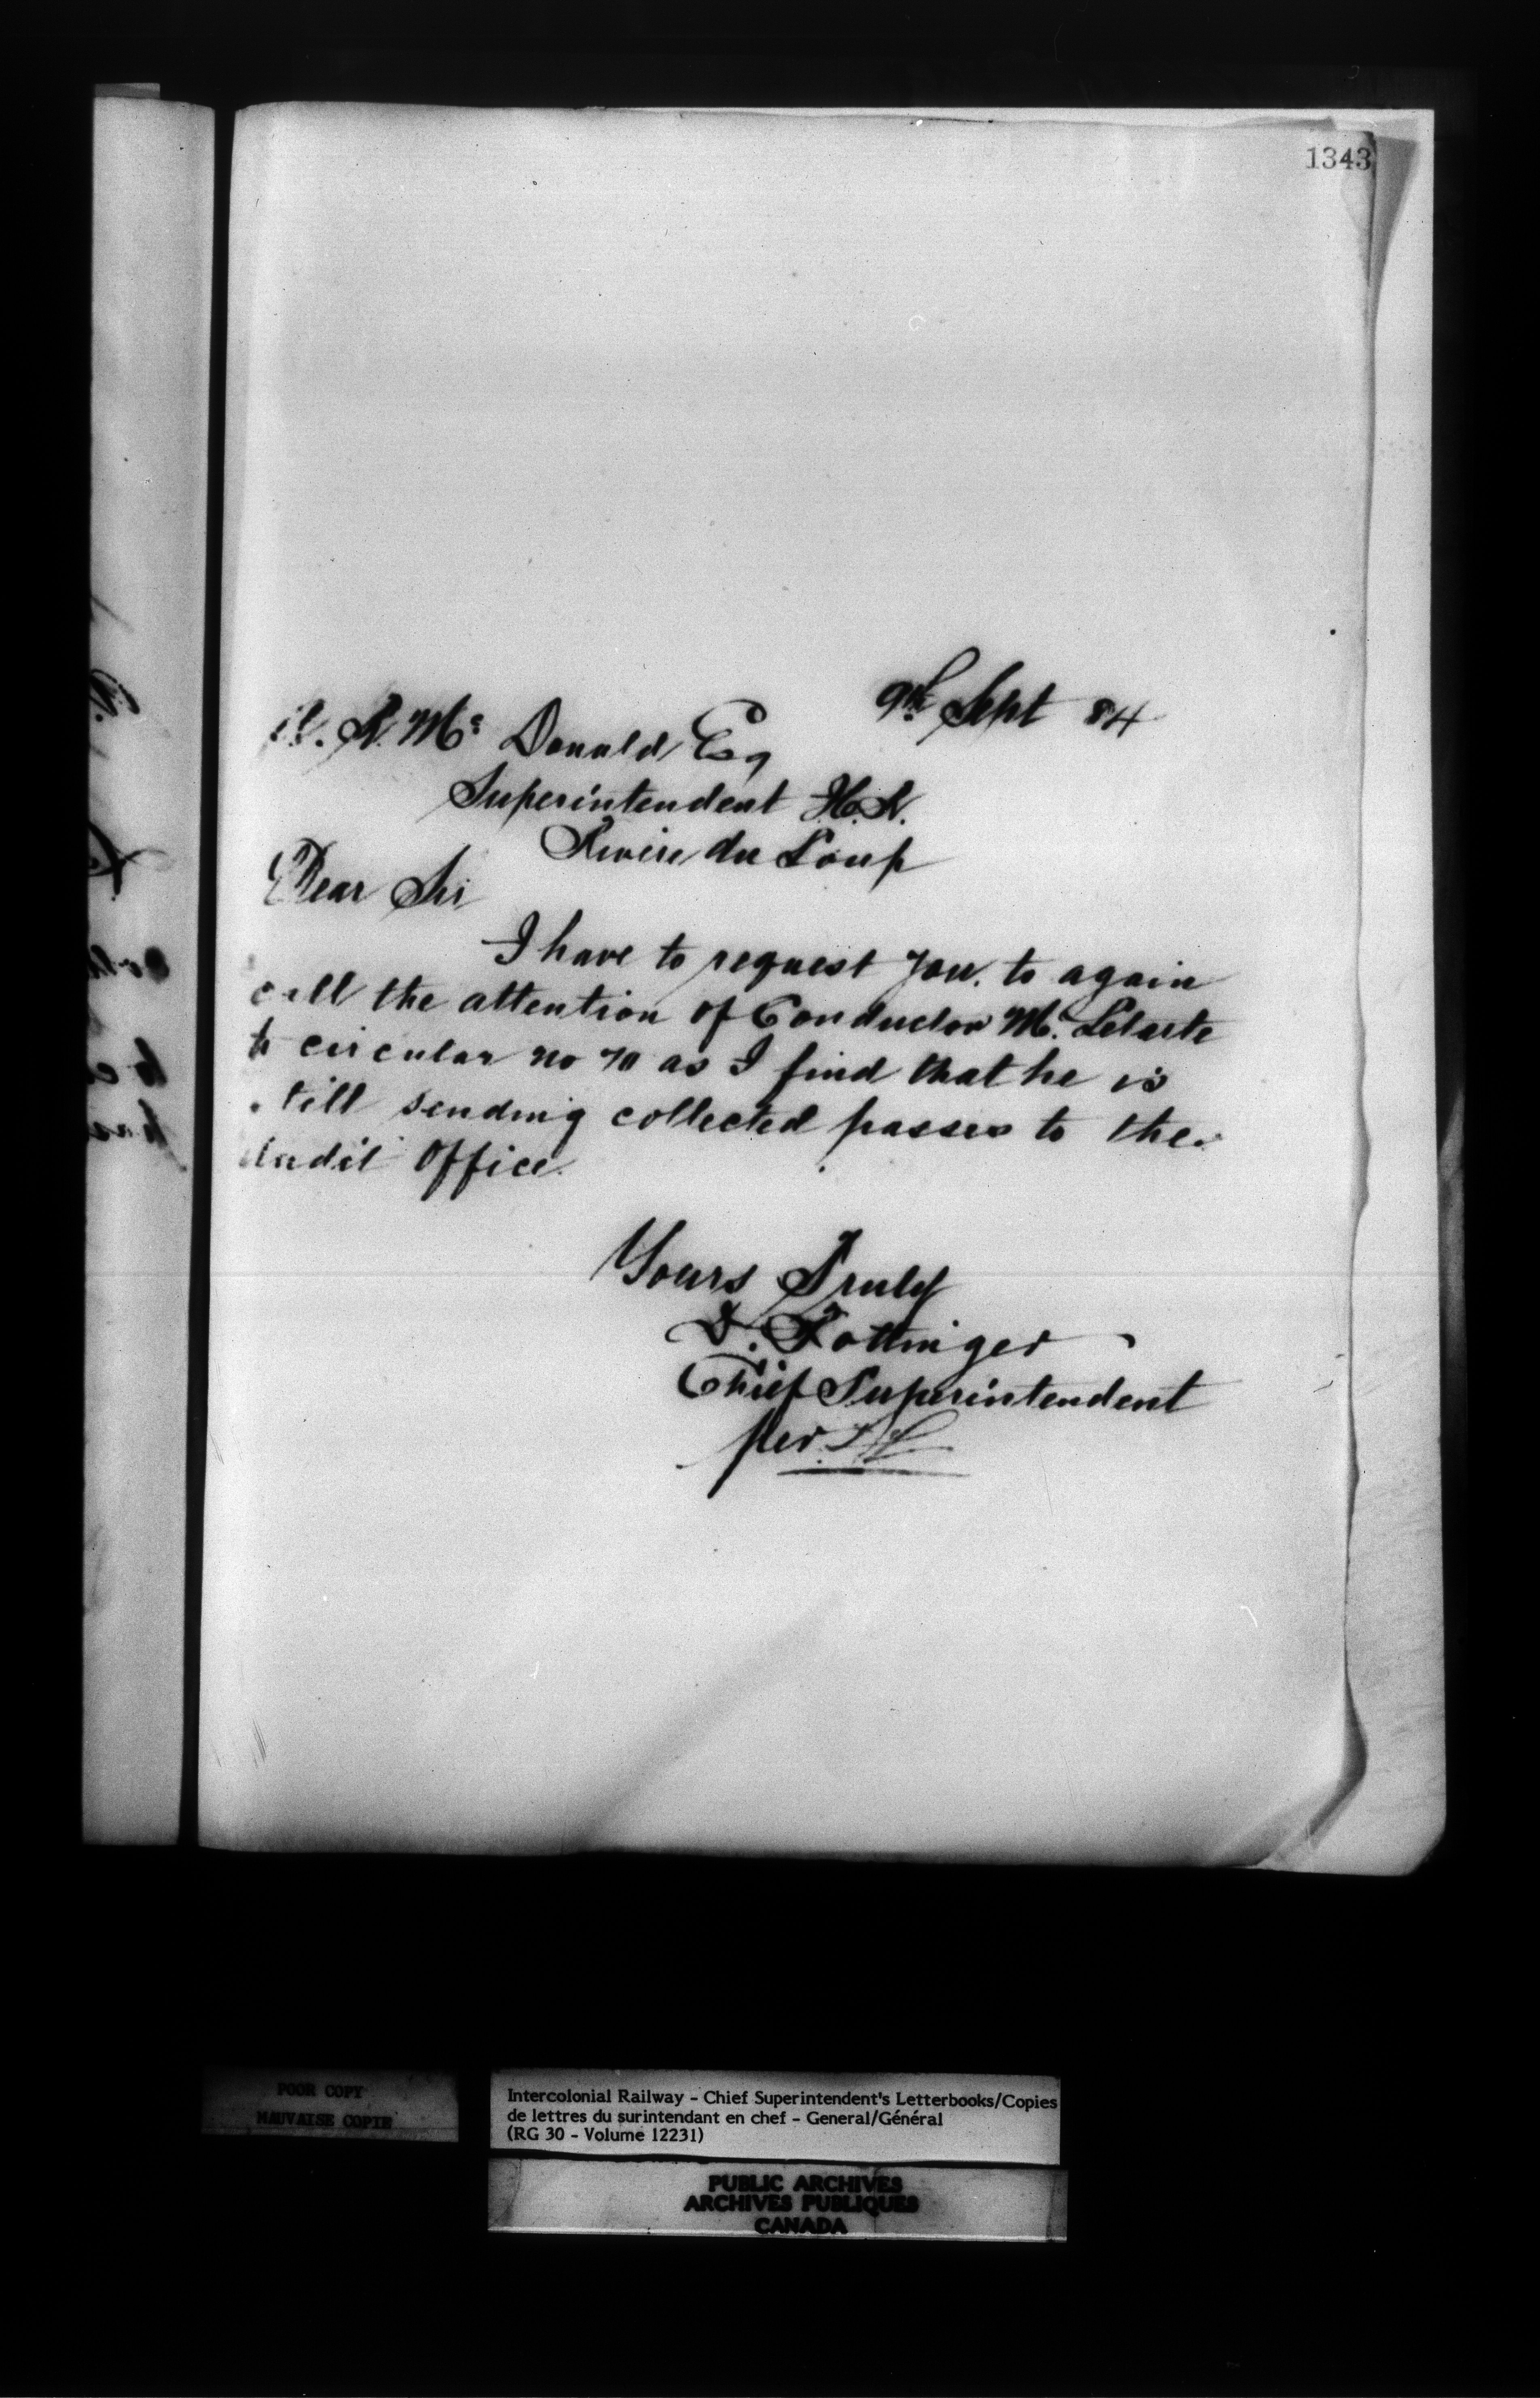 1343
9th Sept 84
A. R. Mc Donald Esq
Superintendent
Riviere du Loup
Dear Sir
I have to request you. to again
call the attention of Conductor M.
to circular no 70 as I find that he is
still sending collected passes to the
Audit Office.
Yours Truly
D. Pottinger
Chief Superintendent
per
POOR COPY
MAUVAISE COPIE
Intercolonial Railway - Chief Superintendent's Letterbooks/Copies
de lettres du surintendant en chef - General/Général
(RG 30 - Volume 12231)
PUBLIC ARCHIVES
ARCHIVES PUBLIQUES
CANADA